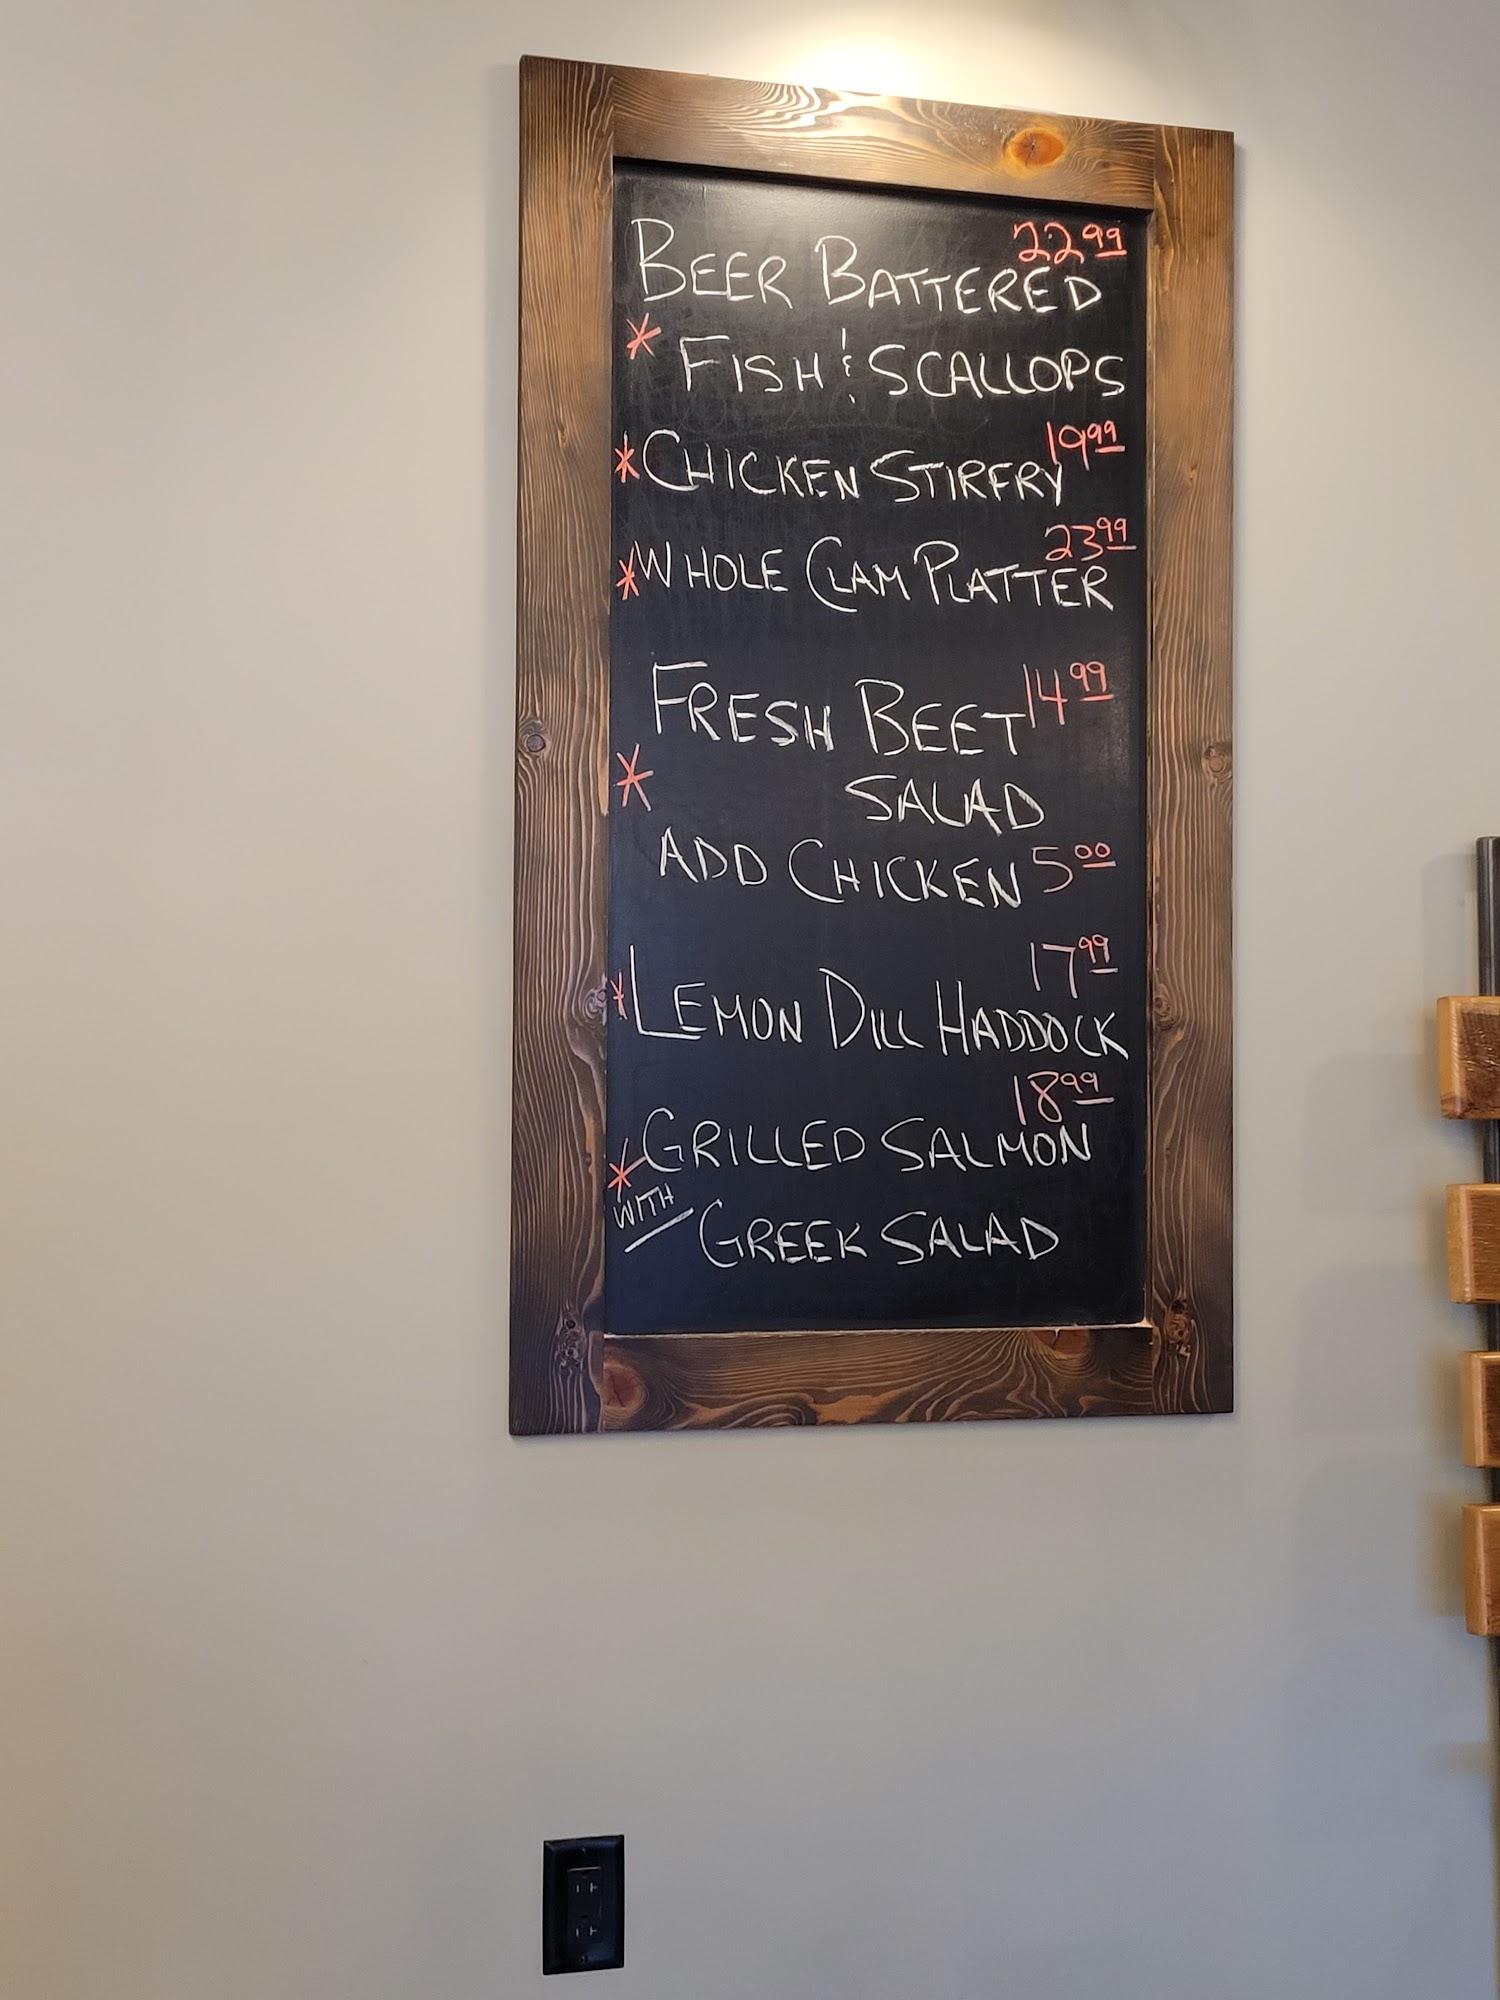 22.99
BEER BATTERED
* FISH & SCALLOPS
19.99
* CHICKEN STIRFRY
23.99
* WHOLE CLAM PLATTER
FRESH BEET 14.99
* SALAD
ADD CHICKEN 5.00
17.99
* LEMON DILL HADDOCK
18.99
* GRILLED SALMON
WITH GREEK SALAD